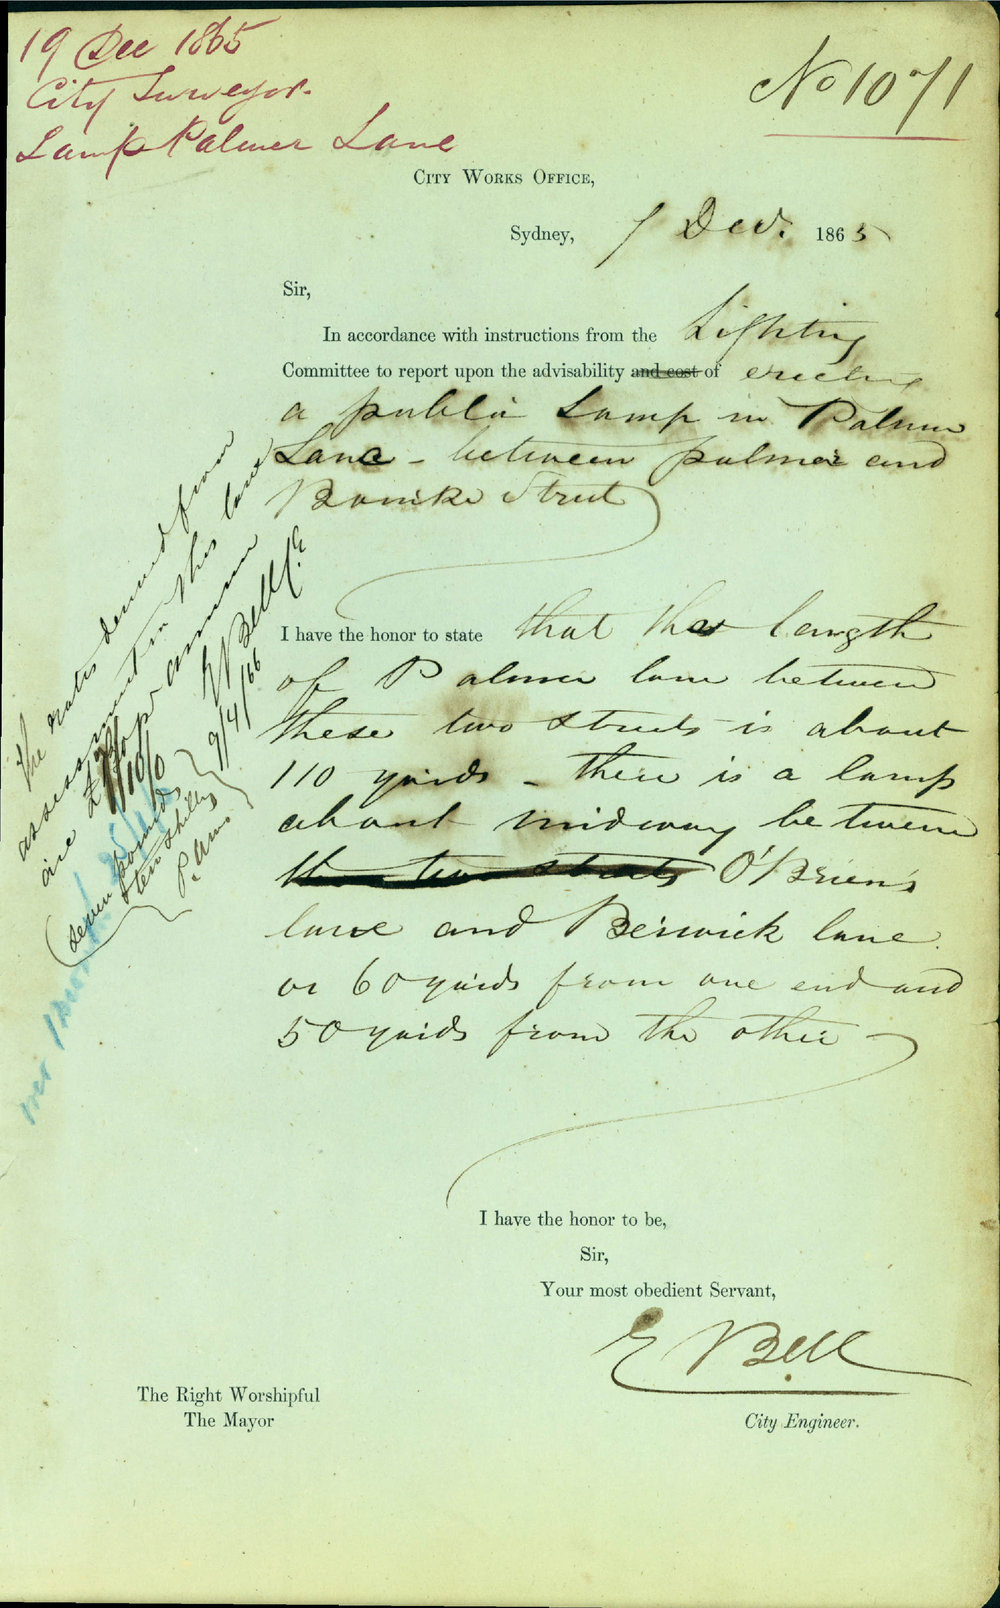 19 Dec 1865
City Surveyor.
Lamp Palmer Lane
No 1071
City Works Office,
Sydney, 7 Dec. 1865
Sir,
In accordance with instructions from the Lighting
Committee to report upon the advisability and cost of erecting
a public Lamp in Palmer
Lane - between palmer and
Street
I have the honor to state that the length
of Palmer lane between
these two streets is about
110 yards - there is a lamp
about midway between
the two streets O'Briens
lane and Berwick lane
or 60 yards from one end and
50 yards from the other -
I have the honor to be,
Sir,
Your most obedient Servant,
E Bell
City Engineer.
The Right Worshipful
The Mayor
The rates derived from
assessment in this lane
are £7/10/0 per annum
(seven pounds
ten shillings
P. Ann)
E Bell C.E
9/4/66